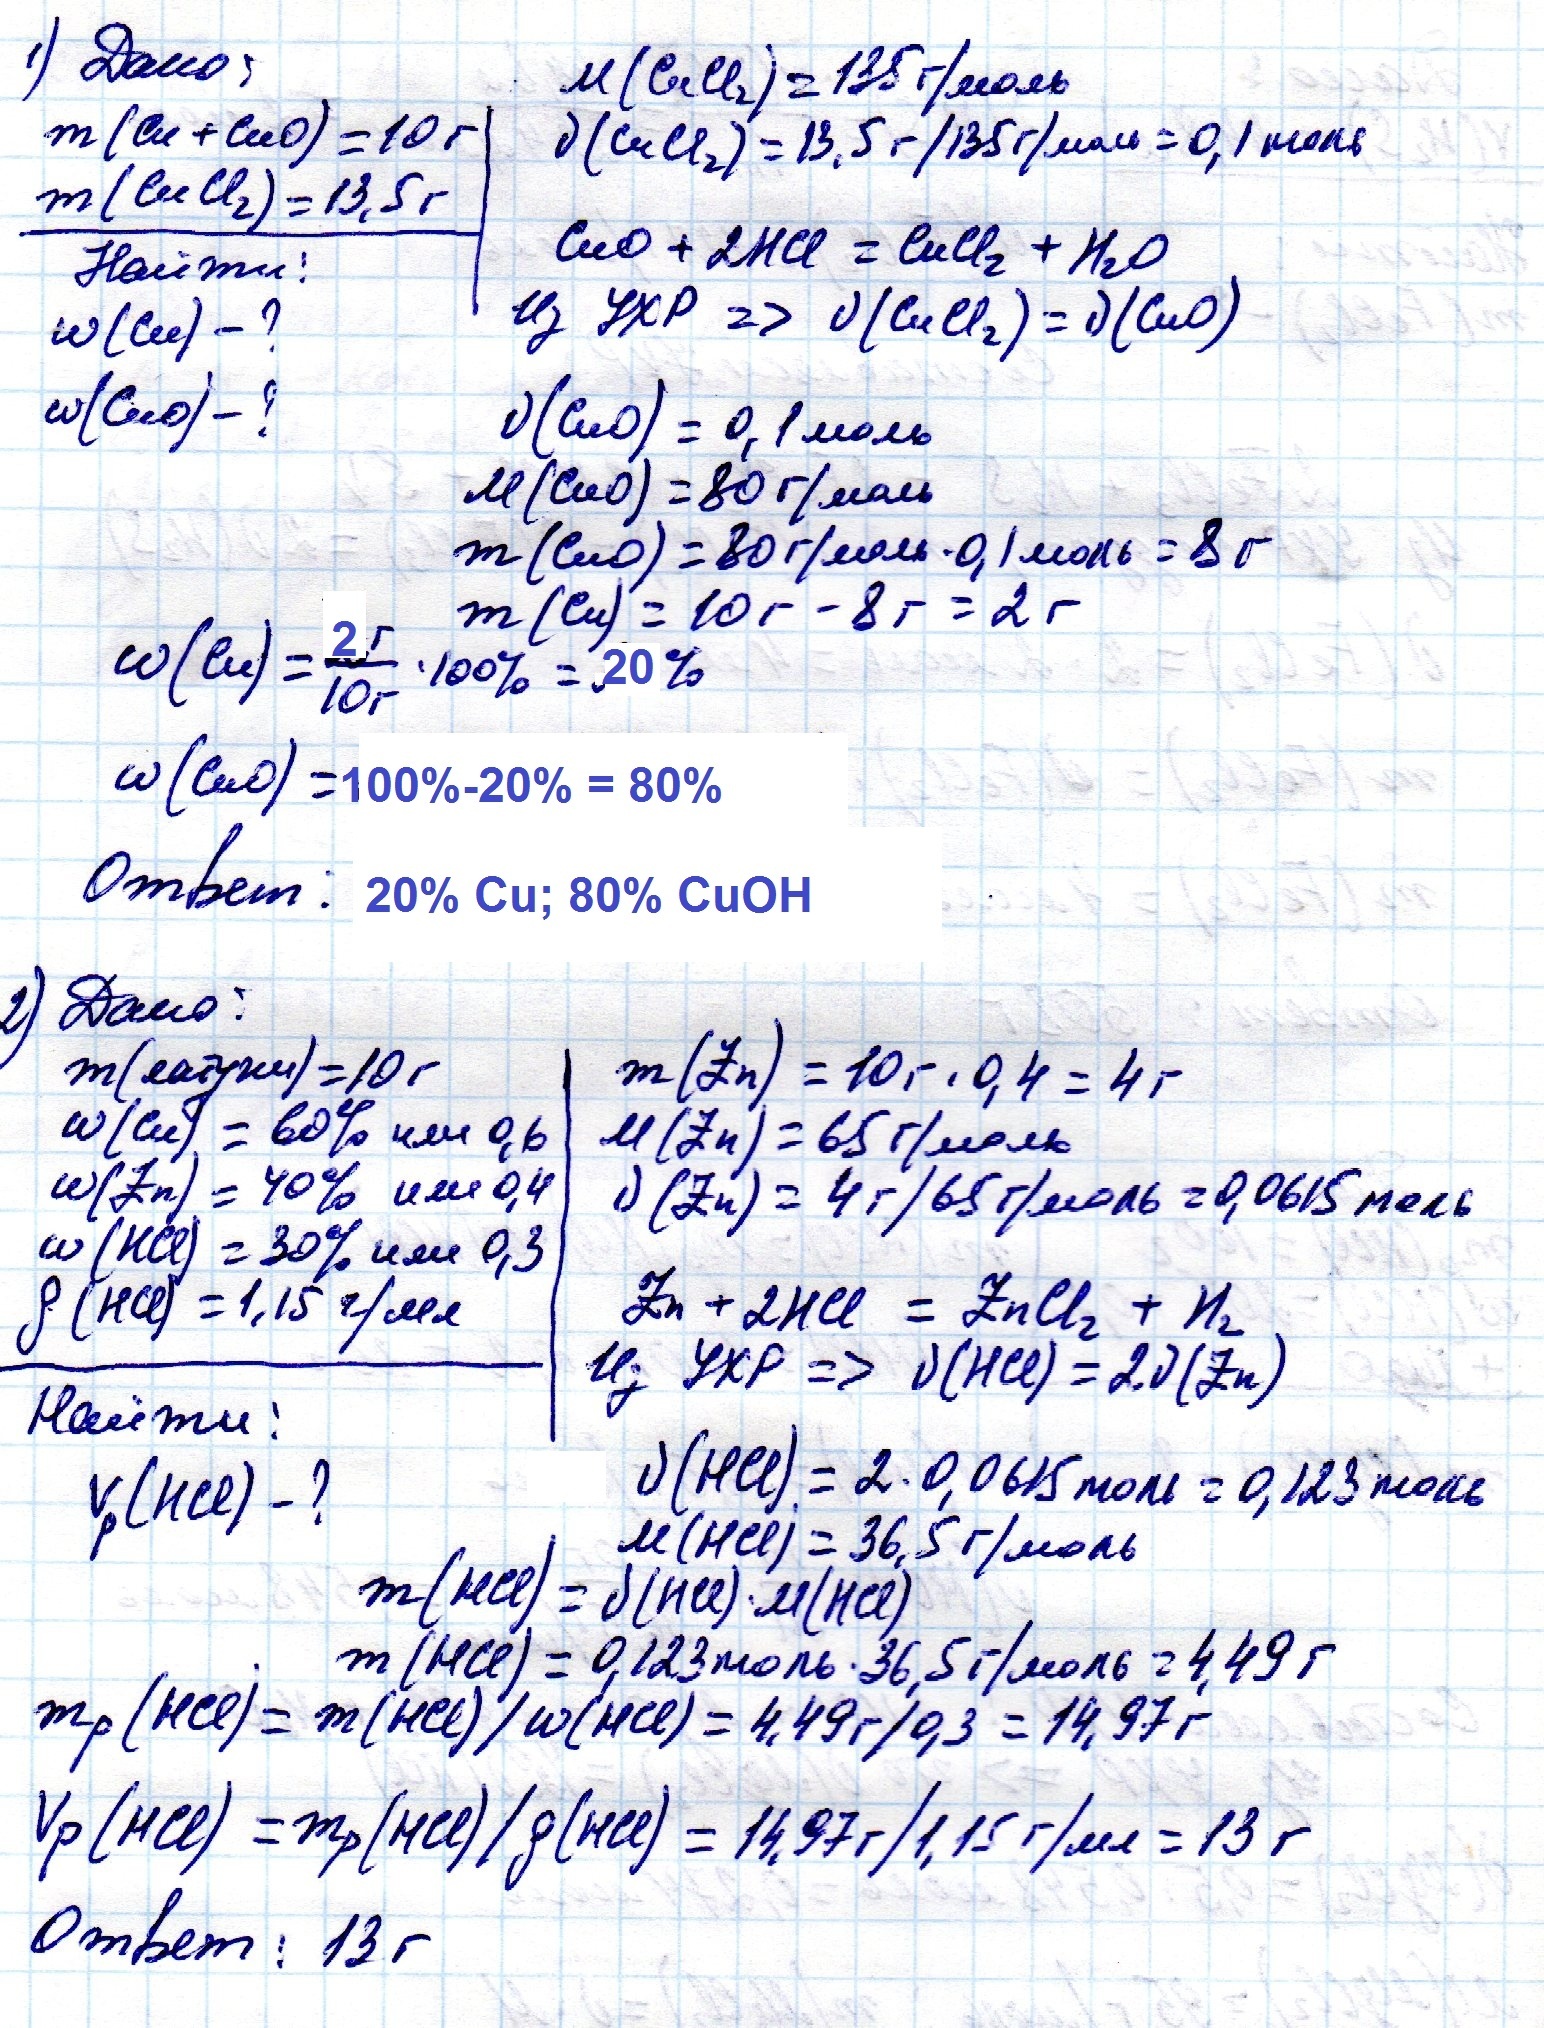 1) Дано:
m(Cu + CuO) = 10 г
m(CuCl₂) = 13,5 г
Найти:
w(Cu) - ?
w(CuO) - ?
M(CuCl₂) = 135 г/моль
ν(CuCl₂) = 13,5 г/135 г/моль = 0,1 моль
CuO + 2HCl = CuCl₂ + H₂O
Из УХР => ν(CuCl₂) = ν(CuO)
ν(CuO) = 0,1 моль
M(CuO) = 80 г/моль
m(CuO) = 80 г/моль · 0,1 моль = 8 г
m(Cu) = 10 г - 8 г = 2 г
w(Cu) = 2 г / 10 г · 100% = 20 %
w(CuO) = 100%-20% = 80%
Ответ: 20% Cu; 80% CuOH
2) Дано:
m(латуни) = 10 г
w(Cu) = 60% или 0,6
w(Zn) = 40% или 0,4
w(HCl) = 30% или 0,3
ρ(HCl) = 1,15 г/мл
Найти:
Vр(HCl) - ?
m(Zn) = 10 г · 0,4 = 4 г
M(Zn) = 65 г/моль
ν(Zn) = 4 г/65 г/моль = 0,0615 моль
Zn + 2HCl = ZnCl₂ + H₂
Из УХР => ν(HCl) = 2·ν(Zn)
ν(HCl) = 2 · 0,0615 моль = 0,123 моль
M(HCl) = 36,5 г/моль
m(HCl) = ν(HCl) · M(HCl)
m(HCl) = 0,123 моль · 36,5 г/моль = 4,49 г
mр(HCl) = m(HCl)/w(HCl) = 4,49 г/0,3 = 14,97 г
Vр(HCl) = mр(HCl)/ρ(HCl) = 14,97 г/1,15 г/мл = 13 г
Ответ: 13 г